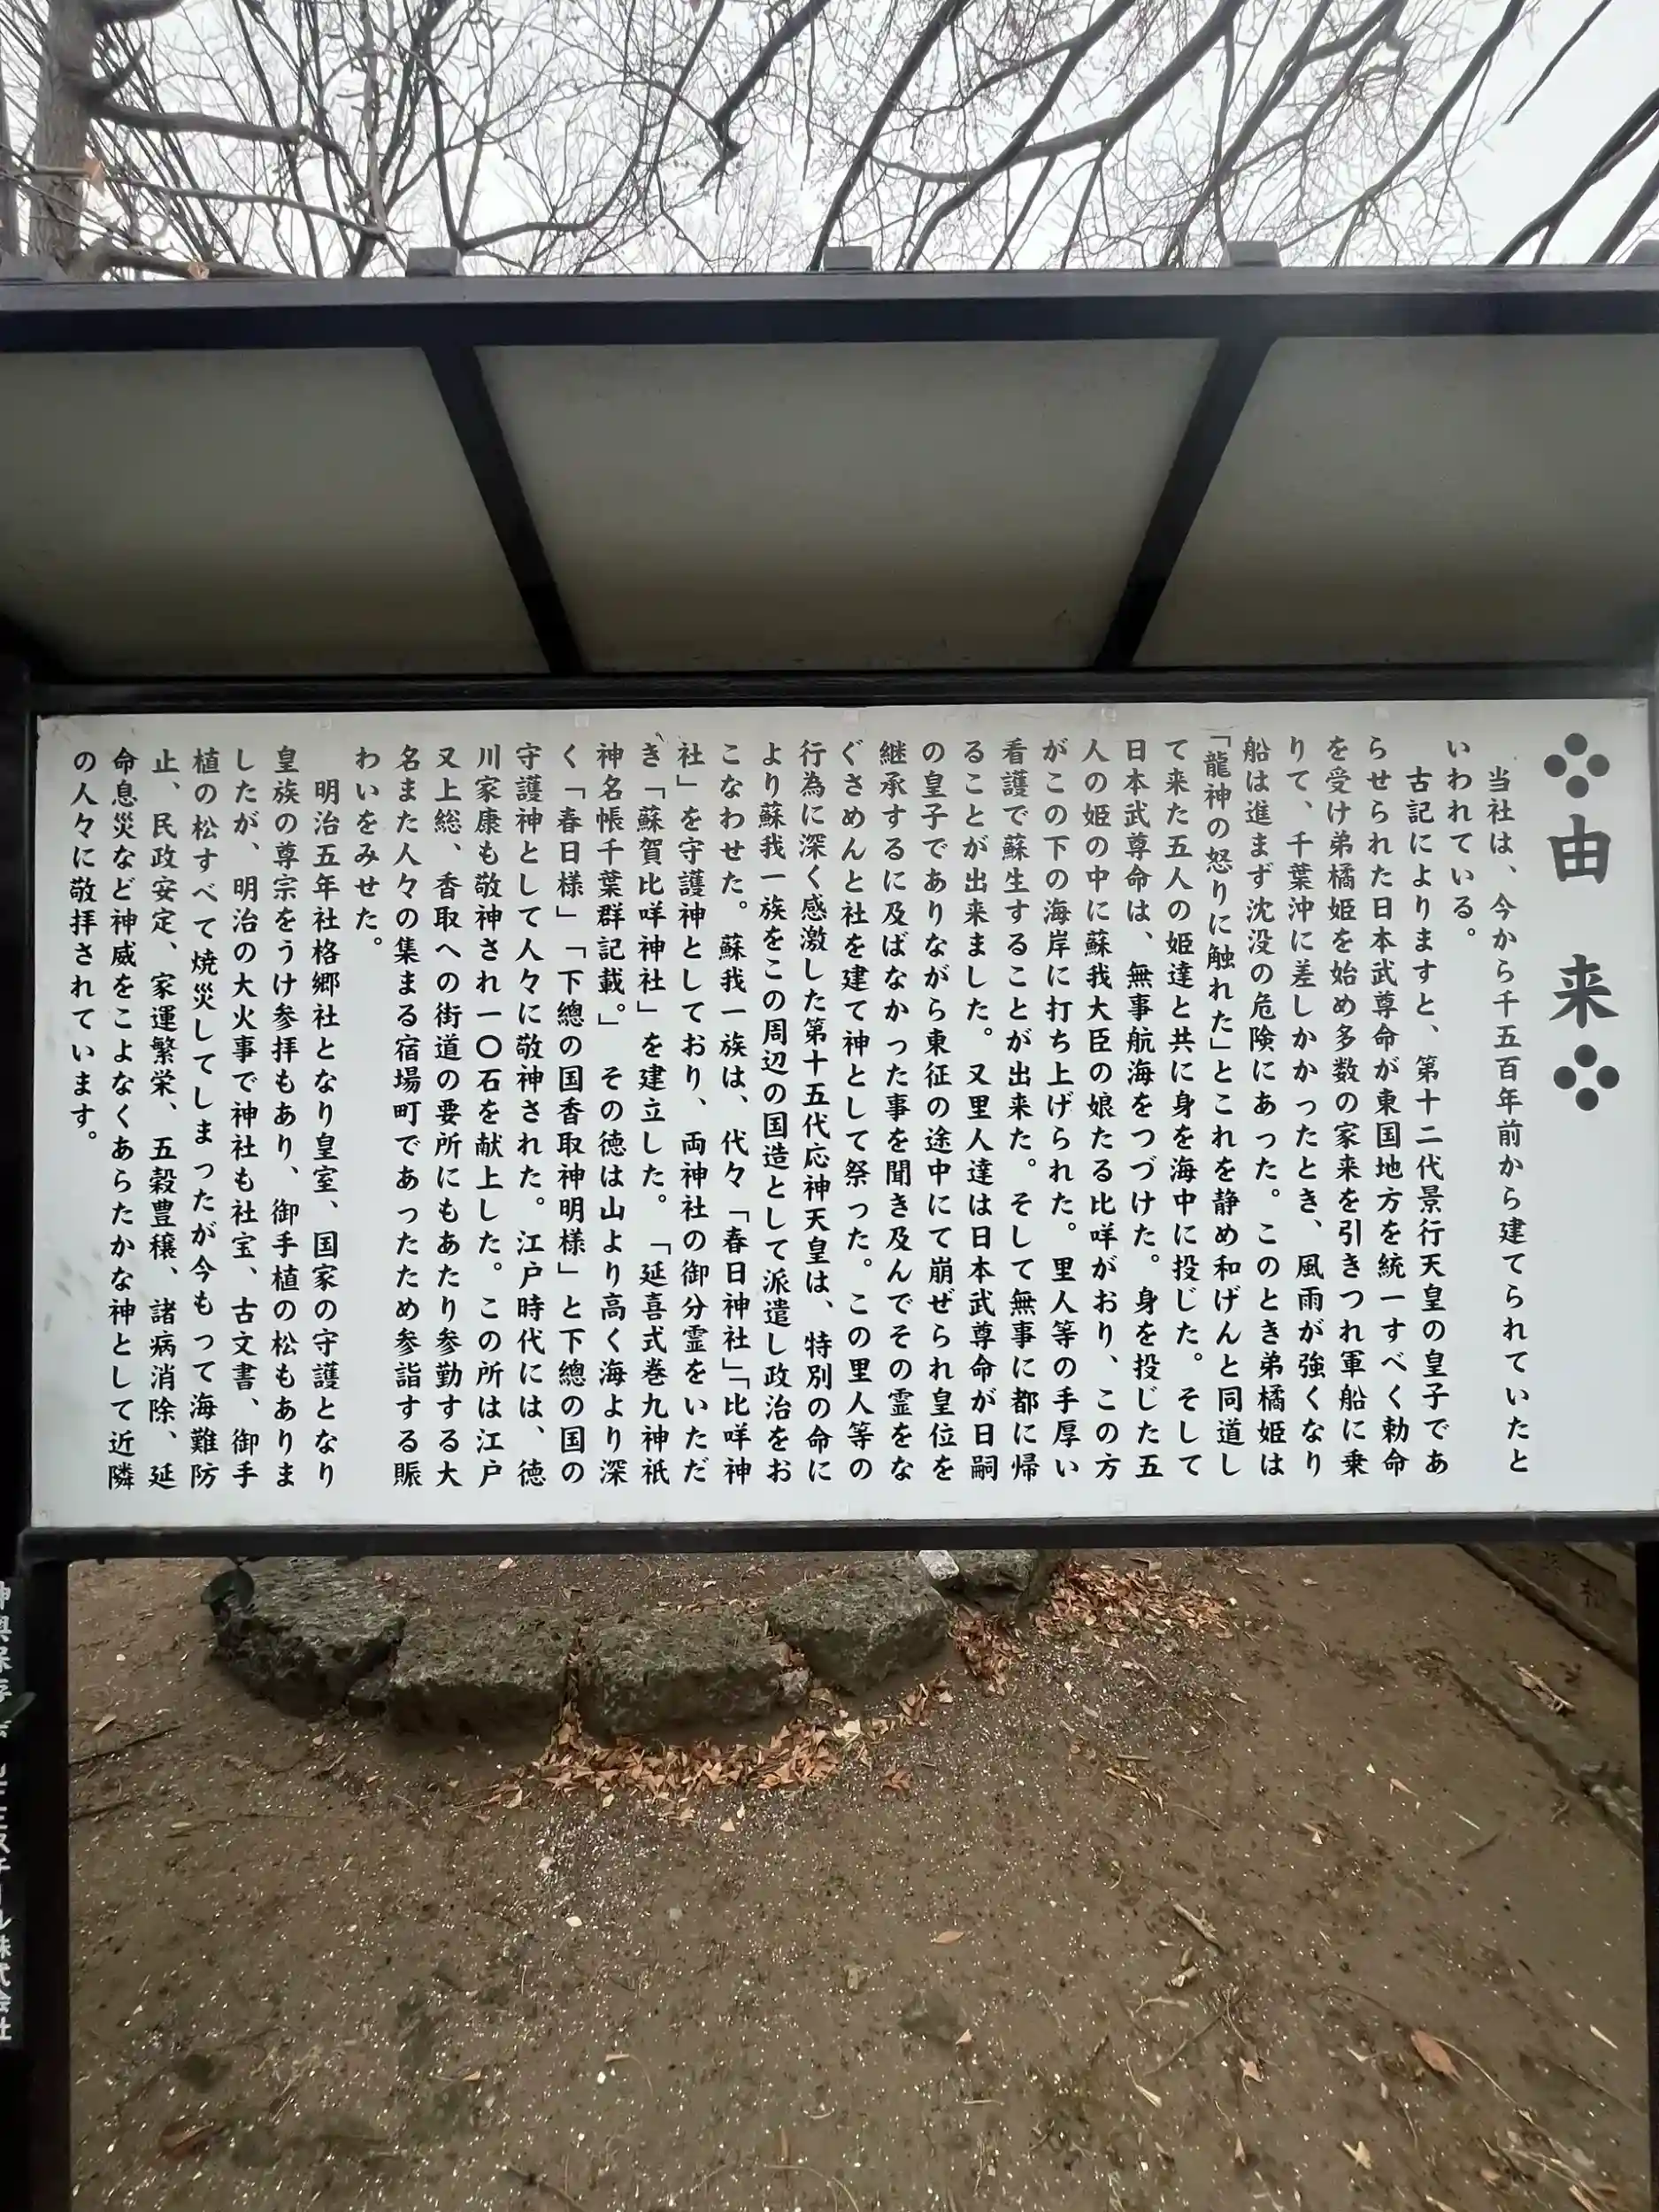 由来
当社は、今から千五百年前から建てられていたと
いわれている。
古記によりますと、第十二代景行天皇の皇子であ
らせられた日本武尊命が東国地方を統一すべく勅命
を受け弟橘姫を始め多数の家来を引きつれ軍船に乗
りて、千葉沖に差しかかったとき、風雨が強くなり
船は進まず沈没の危険にあった。このとき弟橘姫は
「龍神の怒りに触れた」とこれを静め和げんと同道し
て来た五人の姫達と共に身を海中に投じた。そして
日本武尊命は、無事航海をつづけた。身を投じた五
人の姫の中に蘇我大臣の娘たる比咩がおり、この方
がこの下の海岸に打ち上げられた。里人等の手厚い
看護で蘇生することが出来た。そして無事に都に帰
ることが出来ました。又里人達は日本武尊命が日嗣
の皇子でありながら東征の途中にて崩ぜられ皇位を
継承するに及ばなかった事を聞き及んでその霊をな
ぐさめんと社を建て神として祭った。この里人等の
行為に深く感激した第十五代応神天皇は、特別の命に
より蘇我一族をこの周辺の国造として派遣し政治をお
こなわせた。蘇我一族は、代々「春日神社」「比咩神
社」を守護神としており、両神社の御分霊をいただ
き「蘇賀比咩神社」を建立した。「延喜式巻九神祇
神名帳千葉群記載。」その徳は山より高く海より深
く「春日様」「下總の国香取神明様」と下總の国の
守護神として人々に敬神された。江戸時代には、徳
川家康も敬神され一〇石を献上した。この所は江戸
又上総、香取への街道の要所にもあたり参勤する大
名また人々の集まる宿場町であったため参詣する賑
わいをみせた。
明治五年社格郷社となり皇室、国家の守護となり
皇族の尊宗をうけ参拝もあり、御手植の松もありま
したが、明治の大火事で神社も社宝、古文書、御手
植の松すべて焼災してしまったが今もって海難防
止、民政安定、家運繁栄、五穀豊穣、諸病消除、延
命息災など神威をこよなくあらたかな神として近隣
の人々に敬拝されています。